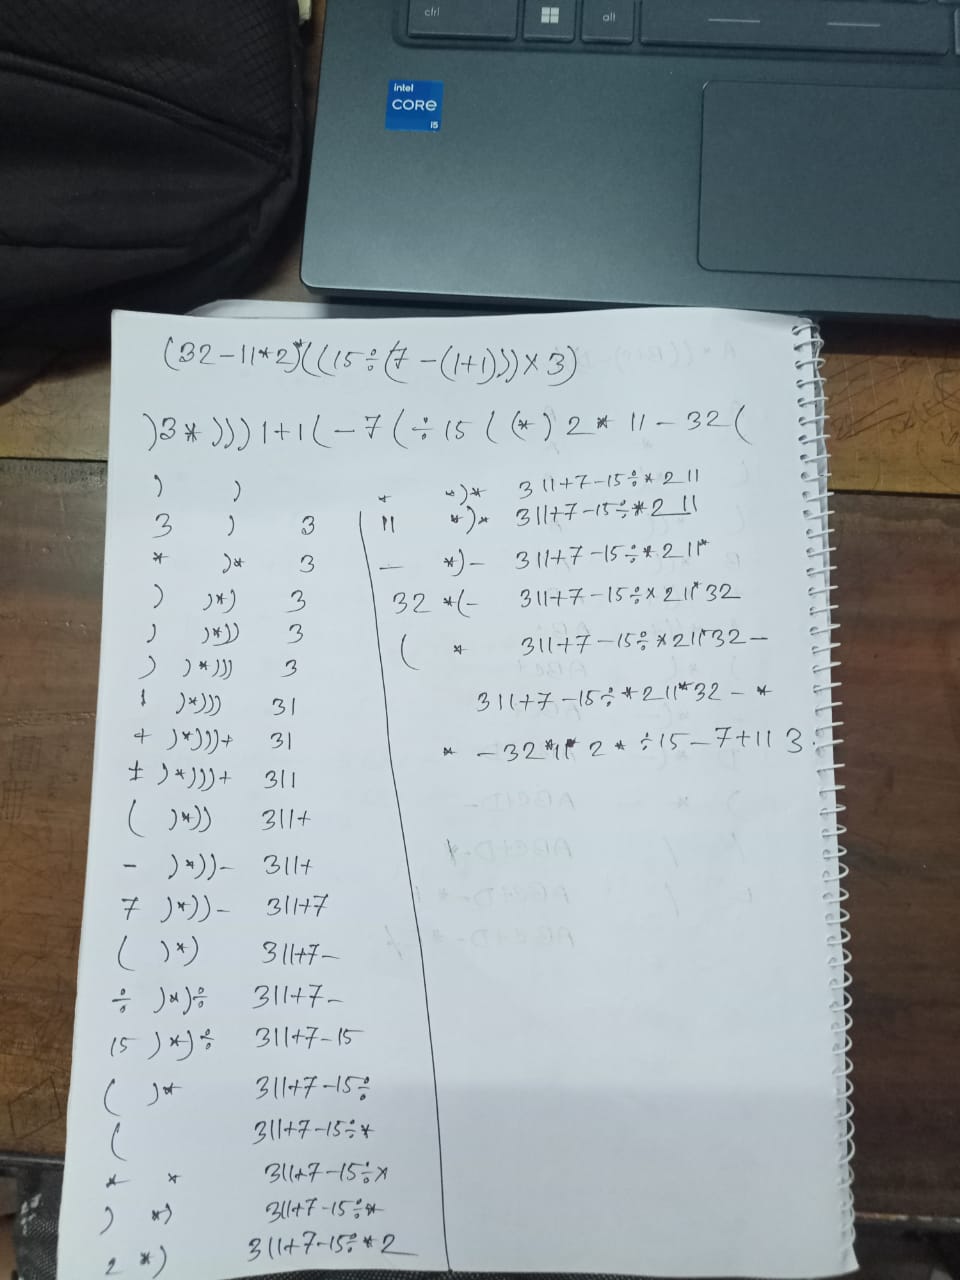 ctrl
alt
intel
CORE
i5
(32-11*2)*((15÷(7-(1+1)))×3)
)3*)))1+1(-7(÷15((*)2*11-32(
) )
3 ) 3
* )* 3
) )*) 3
) )*)) 3
) )*))) 3
1 )*))) 31
+ )*)))+ 31
± )*)))+ 311
( )*)) 311+
- )*))- 311+
7 )*))- 311+7
( )*) 311+7-
÷ )*)÷ 311+7-
15 )*)÷ 311+7-15
( )* 311+7-15÷
( 311+7-15÷*
* * 311+7-15÷×
) *) 311+7-15÷*
2 *) 311+7-15÷*2
* *)* 311+7-15÷*211
11 *)* 311+7-15÷*211
- *)- 311+7-15÷*211*
32 *(- 311+7-15÷×211*32
( * 311+7-15÷*211*32-
311+7-15÷*211*32-*
* -32*11* 2*÷15-7+11 3.